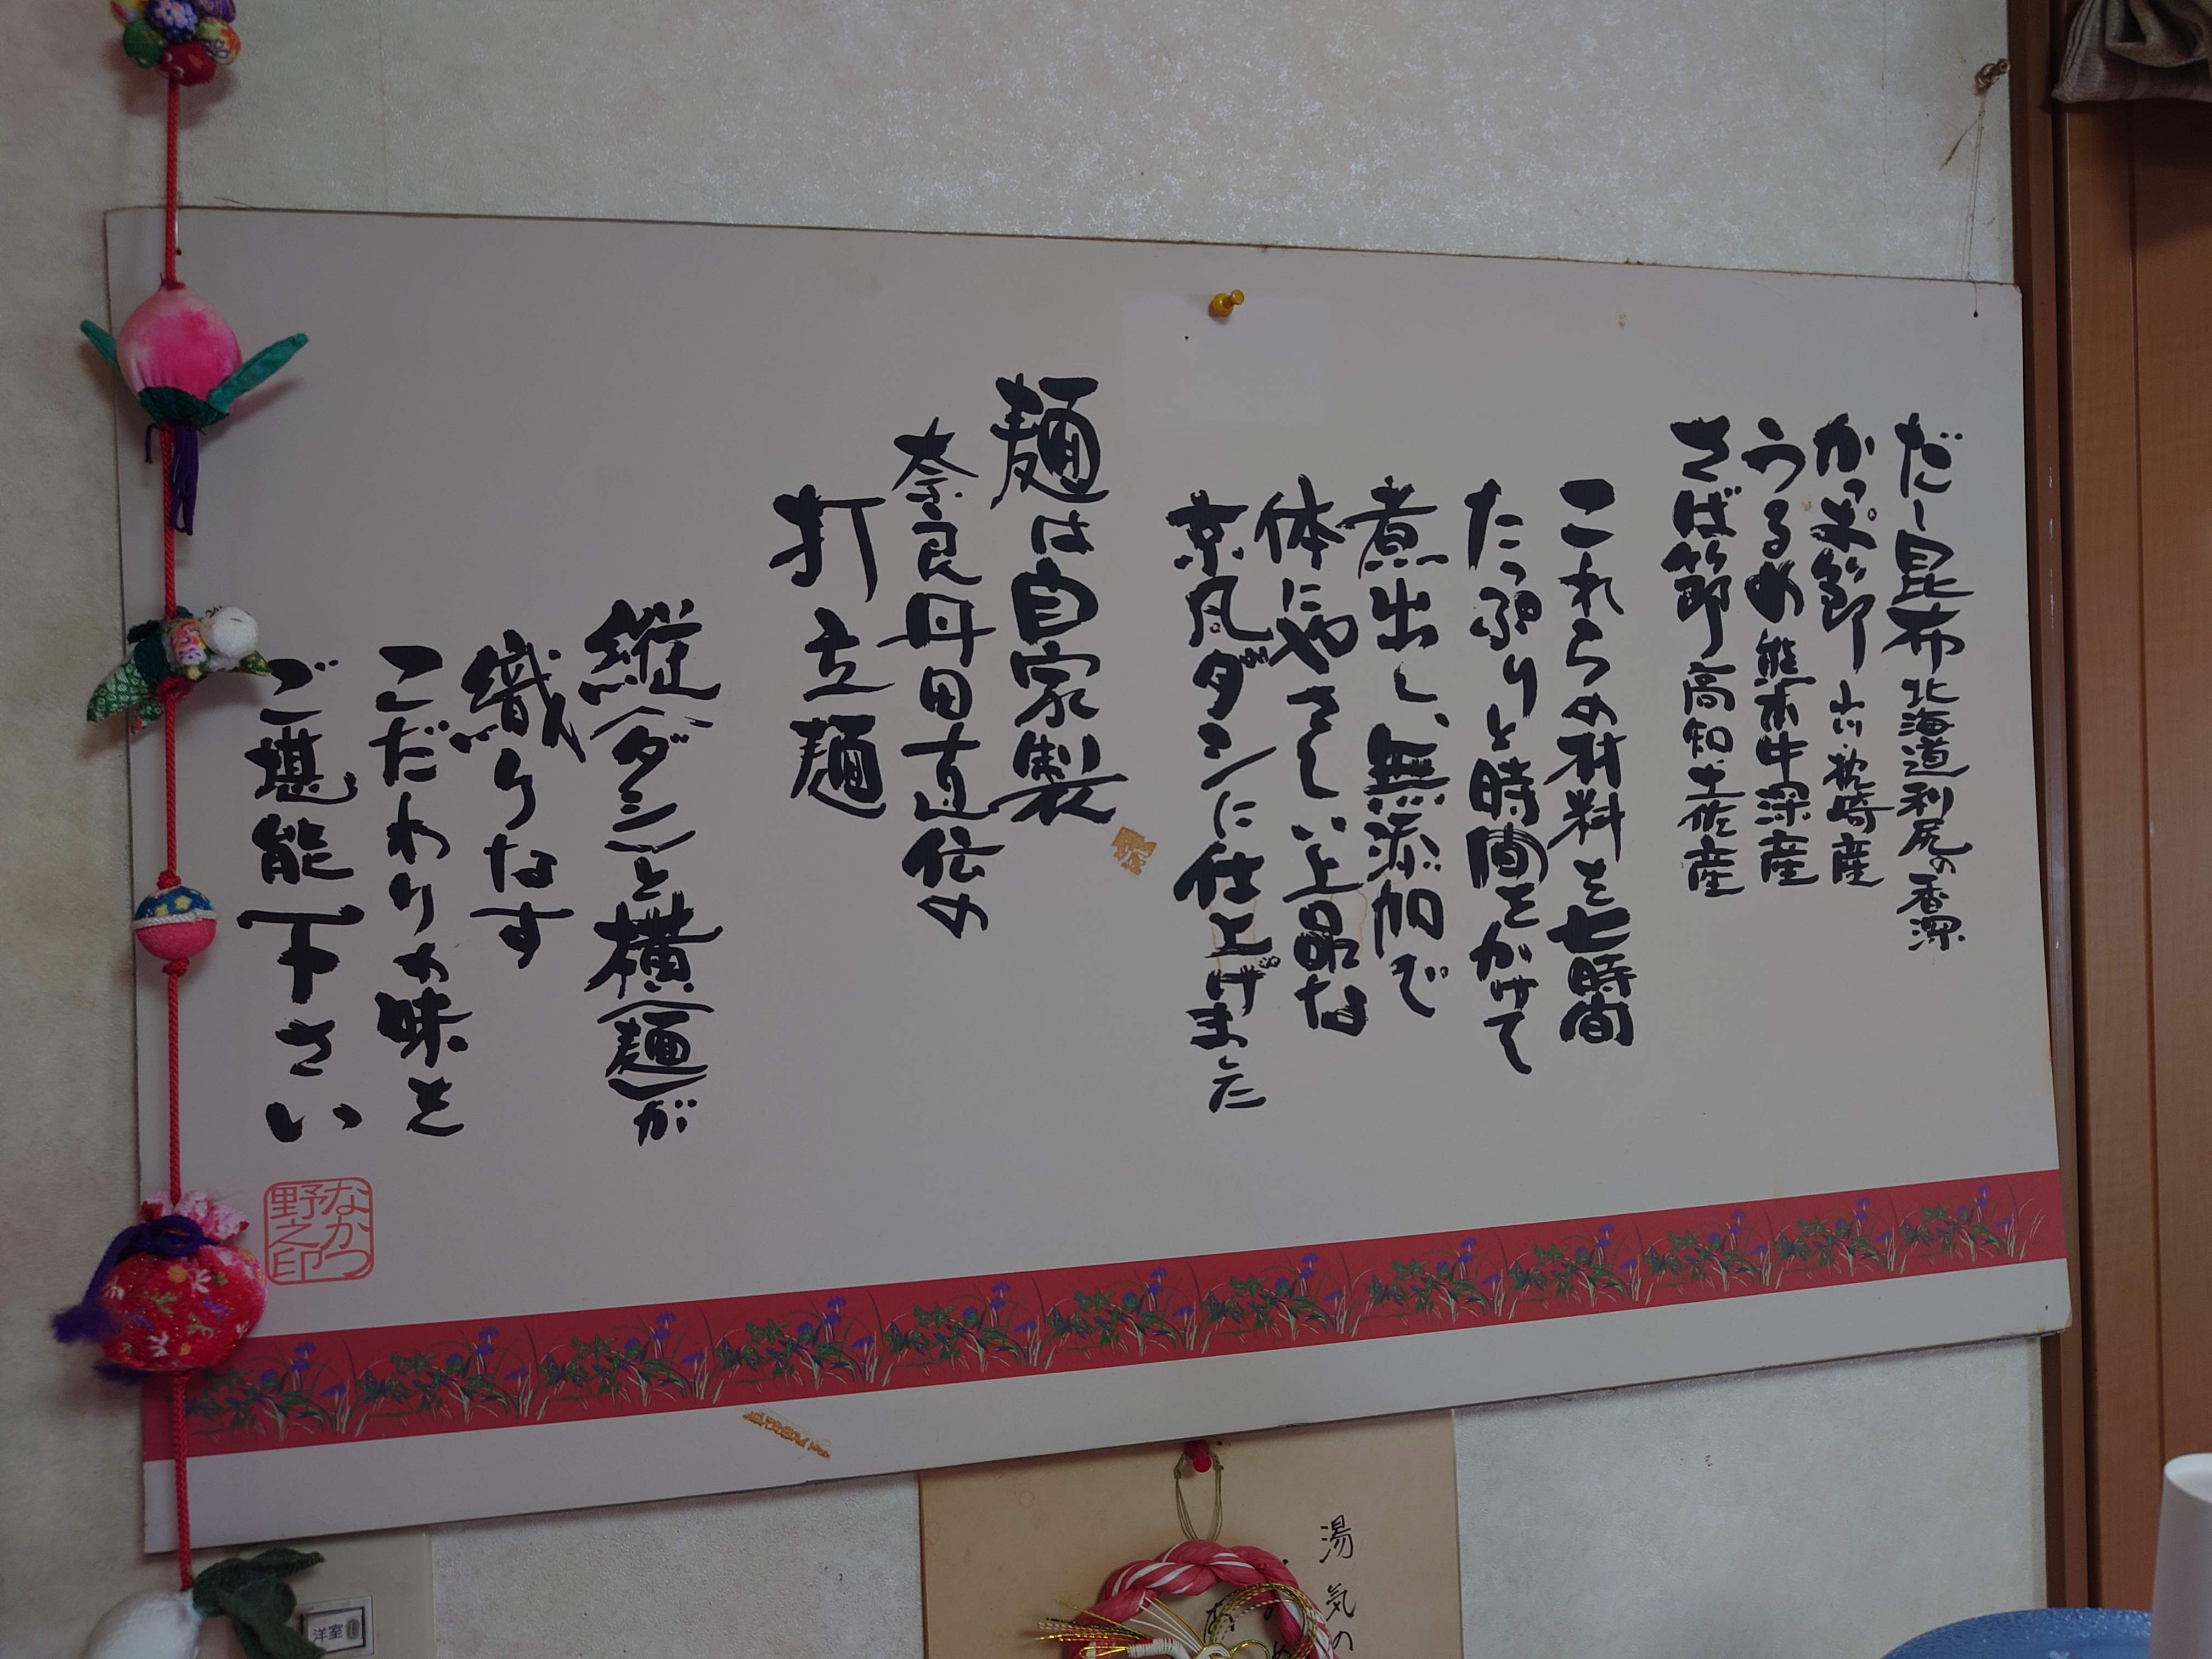 だし昆布 北海道利尻の香深
かつお節 山川・枕崎産
うるめ 熊本牛深産
さば節 高知・土佐産
これらの材料を七時間
たっぷりと時間をかけて
煮出し、無添加で
体にやさしい上品な
京風ダシに仕上げました
麺は自家製
奈良丹田直伝の
打立麺
縦(ダシ)と横(麺)が
織りなす
こだわりの味を
ご堪能下さい
なかつ
野之印
湯気の
洋室